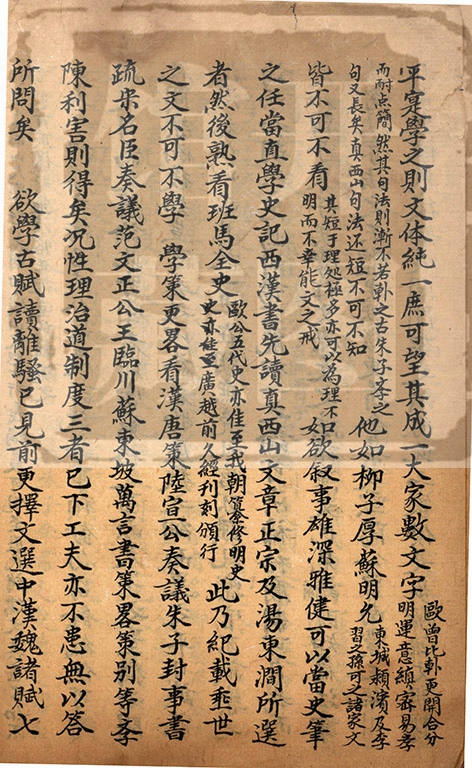 平寔學之則文体純一庶可望其成一大家數文字
歐曾比韓更開合分
明運意縝密易孝
而耐点簡然其句法則漸不若韓之古朱子孝之
句又長矣真西山句法还短不可不知
他如柳子厚蘇明允
東城潁濱及李
習之孫可之諸家文
皆不可不看
其短于理処極多亦可以為理不
明而不幸能文之戒
如欲叙事雄深雅健可以當史筆
之任當直學史記西漢書先讀真西山文章正宗及湯東澗所選
者然後熟看班馬全史
歐公五代史亦佳至我朝纂修明史
史亦佳至廣越前久經刊刻頒行
此乃紀載垂世
之文不可不學 學策更畧看漢唐策陸宣公奏議朱子封事書
疏宋名臣奏議范文正公王臨川蘇東坡萬言書策畧策别等孝
陳利害則得矣况性理治道制度三者已下工夫亦不患無以答
所問矣 欲學古賦讀離騷已見前更擇文選中漢魏諸賦七